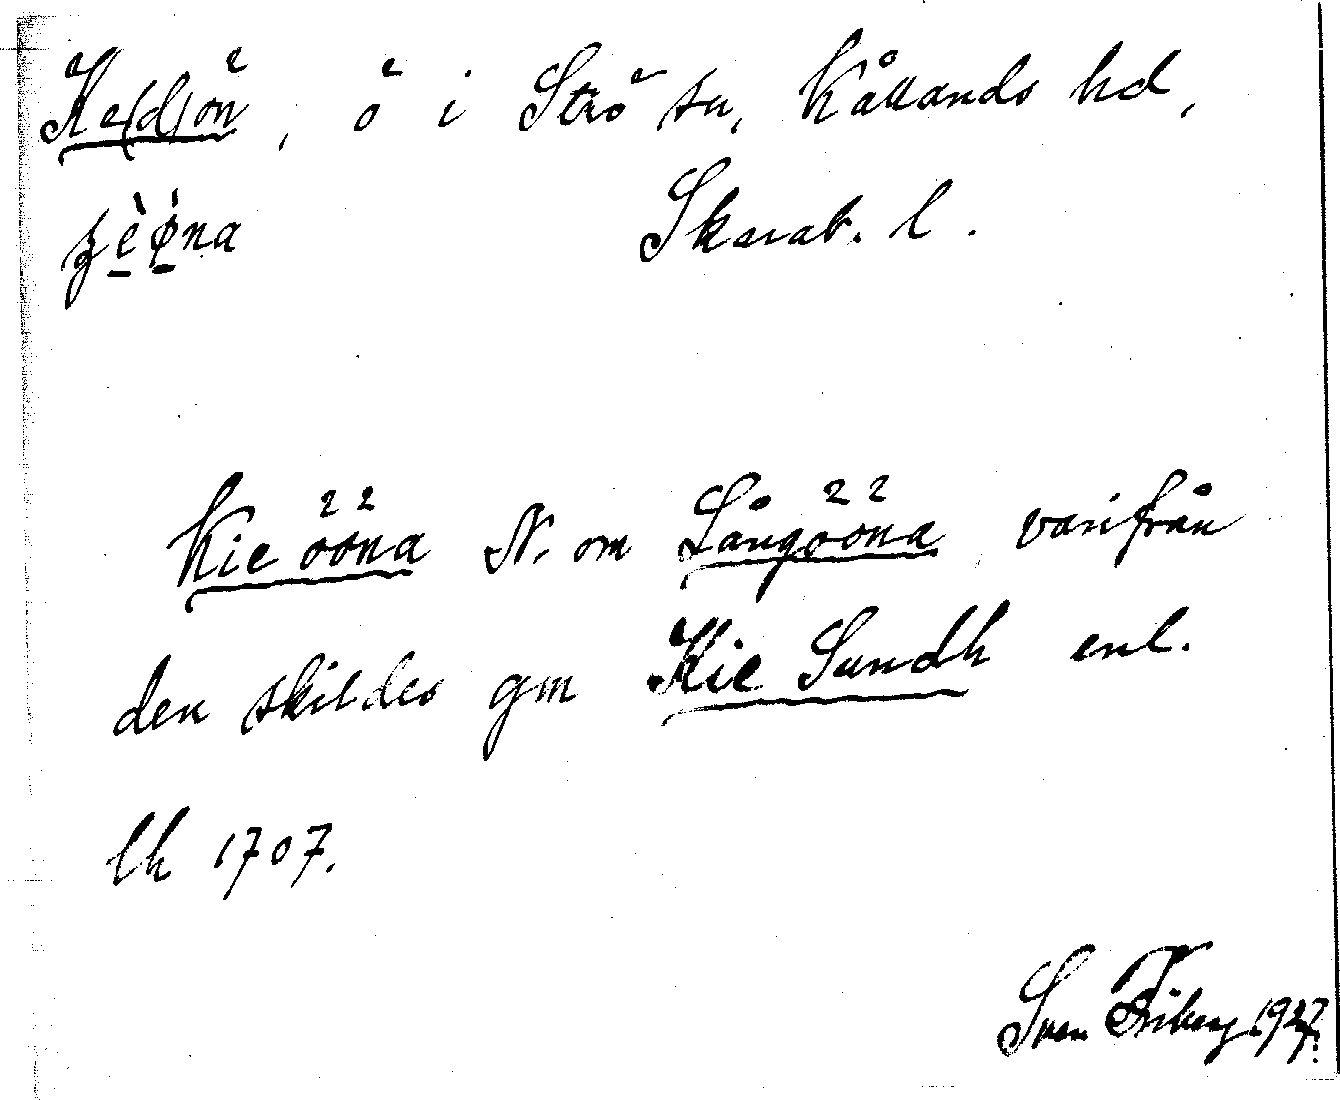 Ke(d)ön, ö i Strö sn, Kållands hd,
Skarab. l.
Kie ööna N. om Långööna varifrån
den skildes gm Kie Sundh enl.
lh 1707.
Sven Friberg 1927.